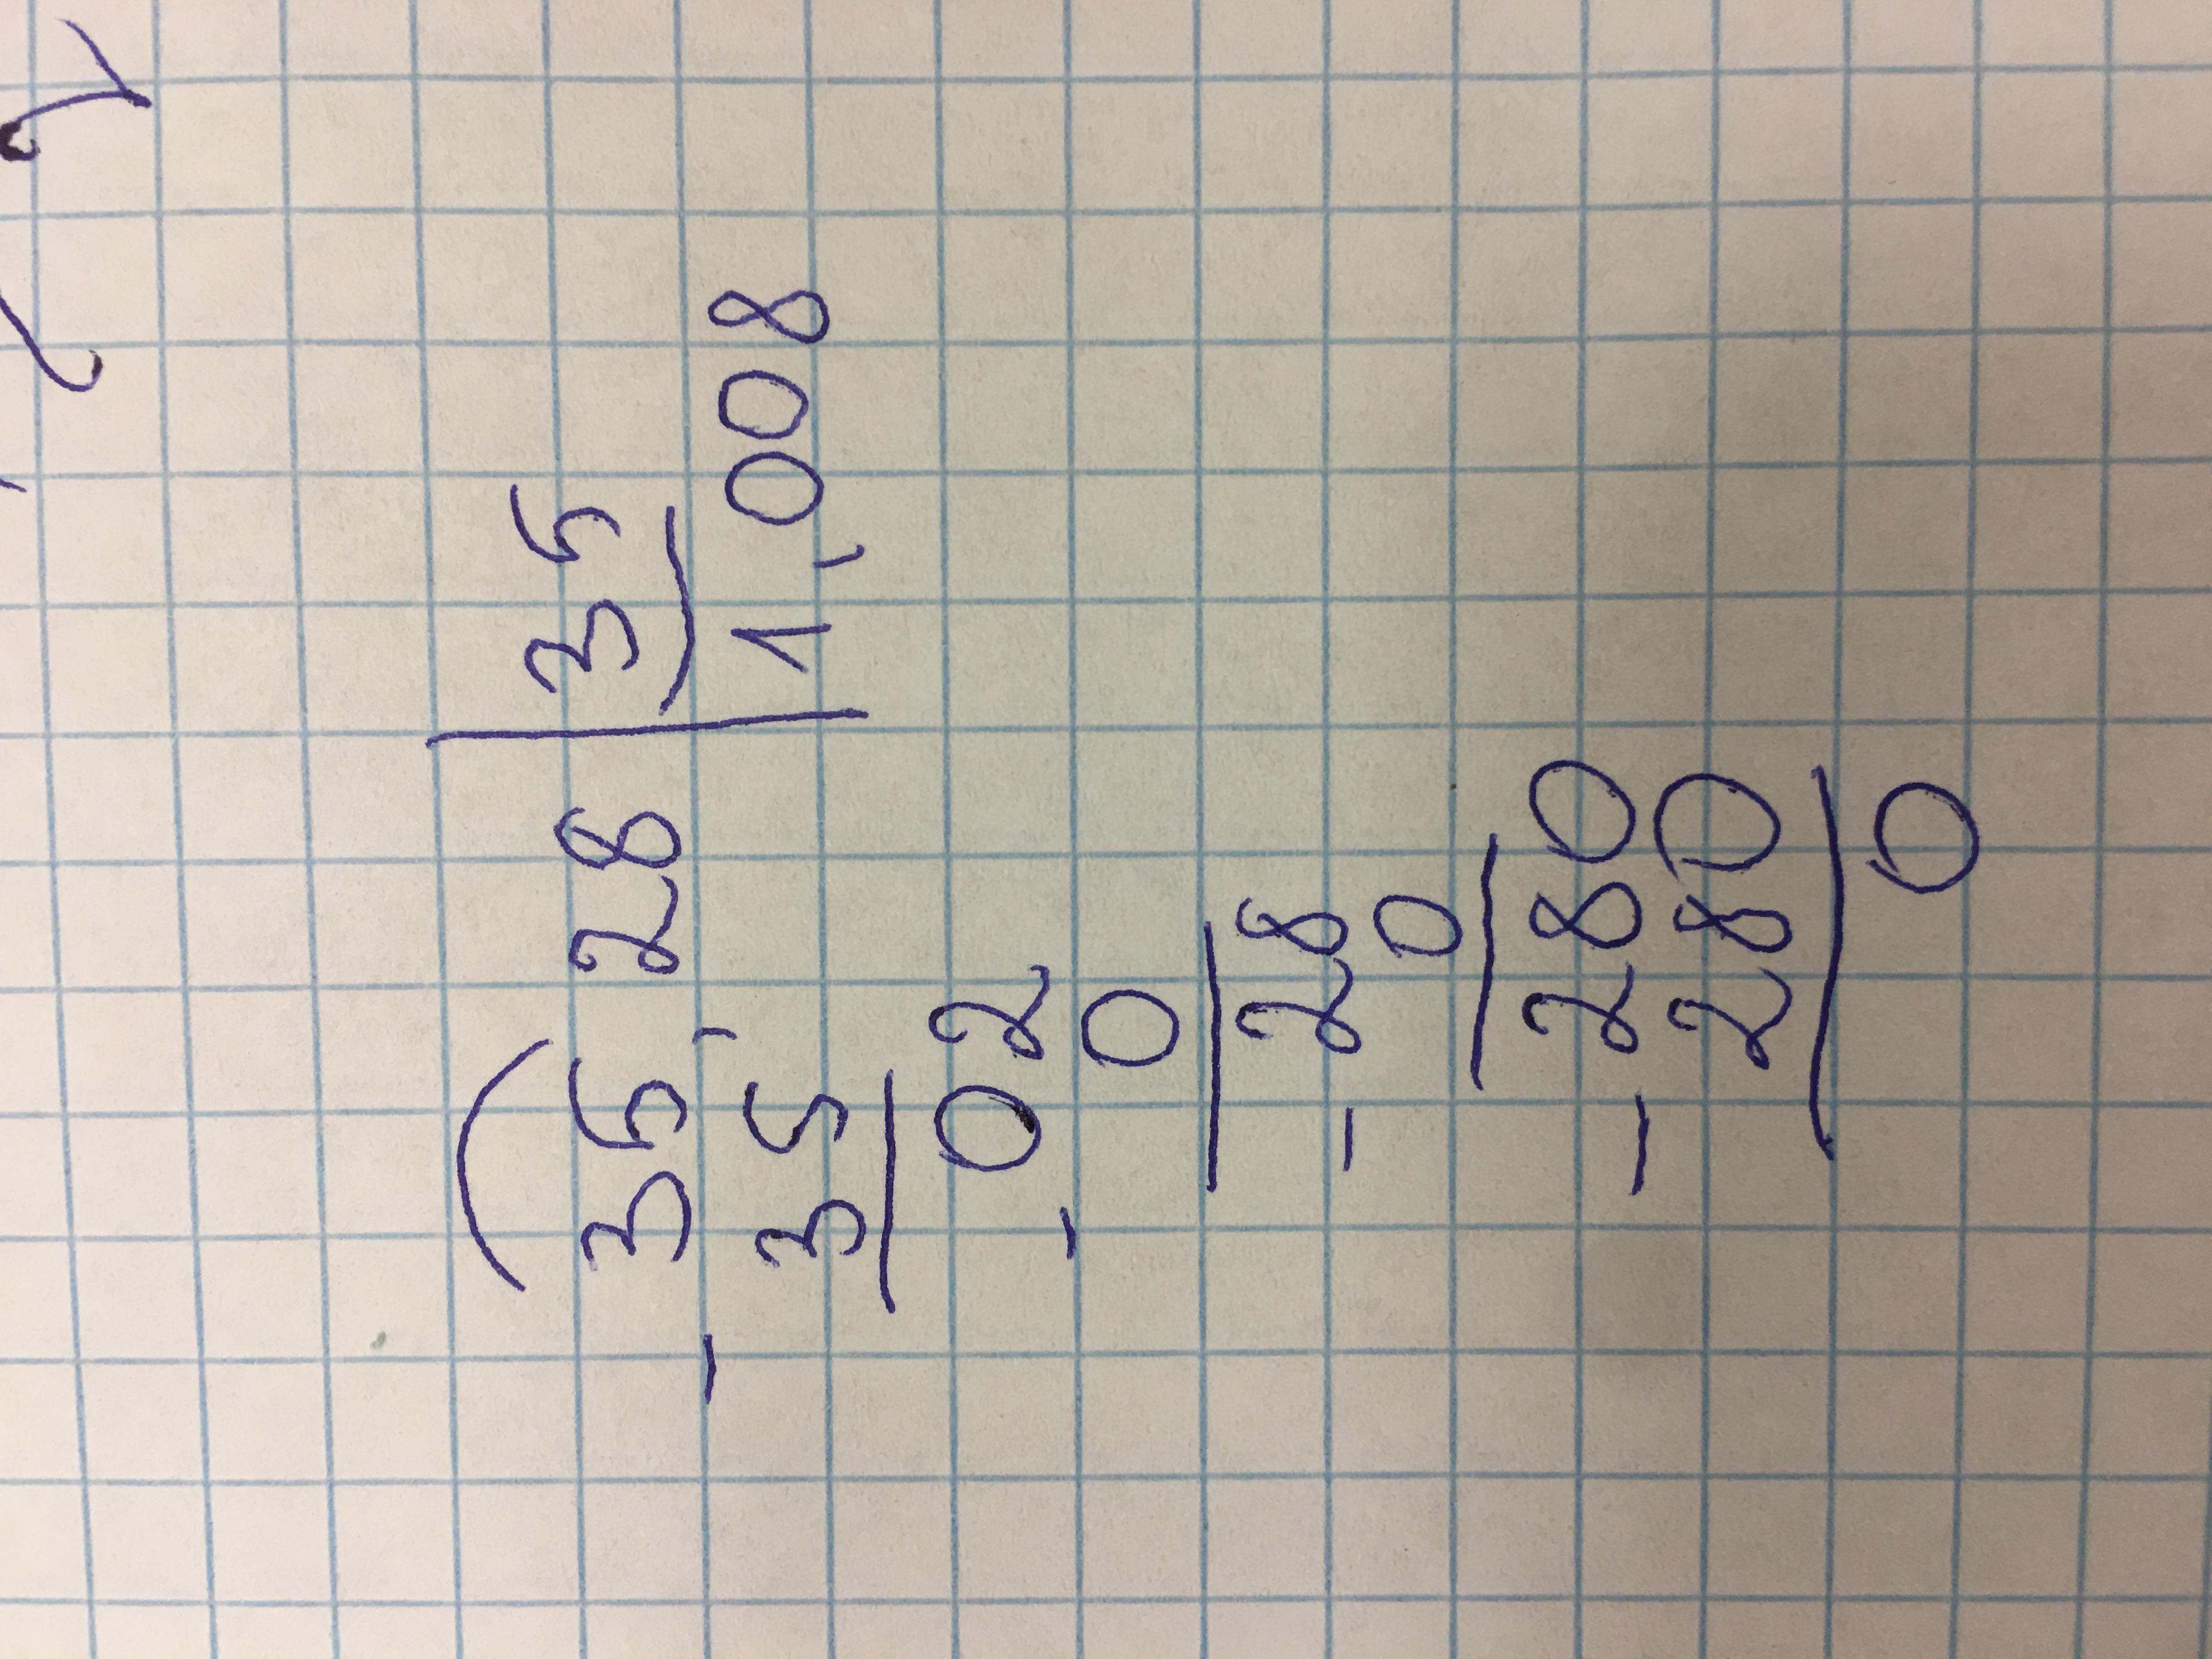 35,28 | 35
- 35 | 1,008
02
- 0
- 28
0
- 280
280
0